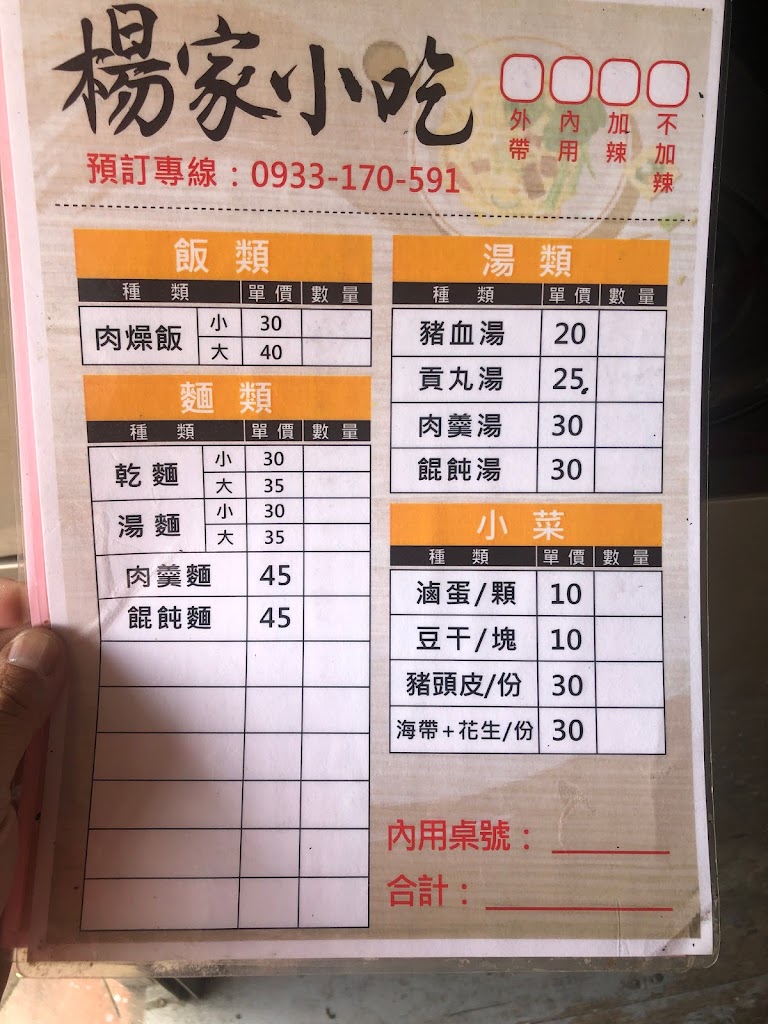 楊家小吃
外帶 內用 加辣 不加辣
預訂專線：0933-170-591
飯類
種類 單價 數量
肉燥飯 小 30
大 40
麵類
種類 單價 數量
乾麵 小 30
大 35
湯麵 小 30
大 35
肉羹麵 45
餛飩麵 45
湯類
種類 單價 數量
豬血湯 20
貢丸湯 25
肉羹湯 30
餛飩湯 30
小菜
種類 單價 數量
滷蛋/顆 10
豆干/塊 10
豬頭皮/份 30
海帶+花生/份 30
內用桌號：
合計：